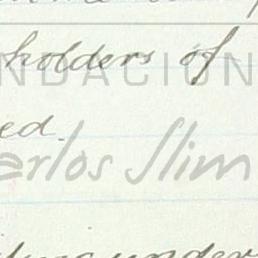 holders of
NDACIÓN
ed.
arlos Slim
under